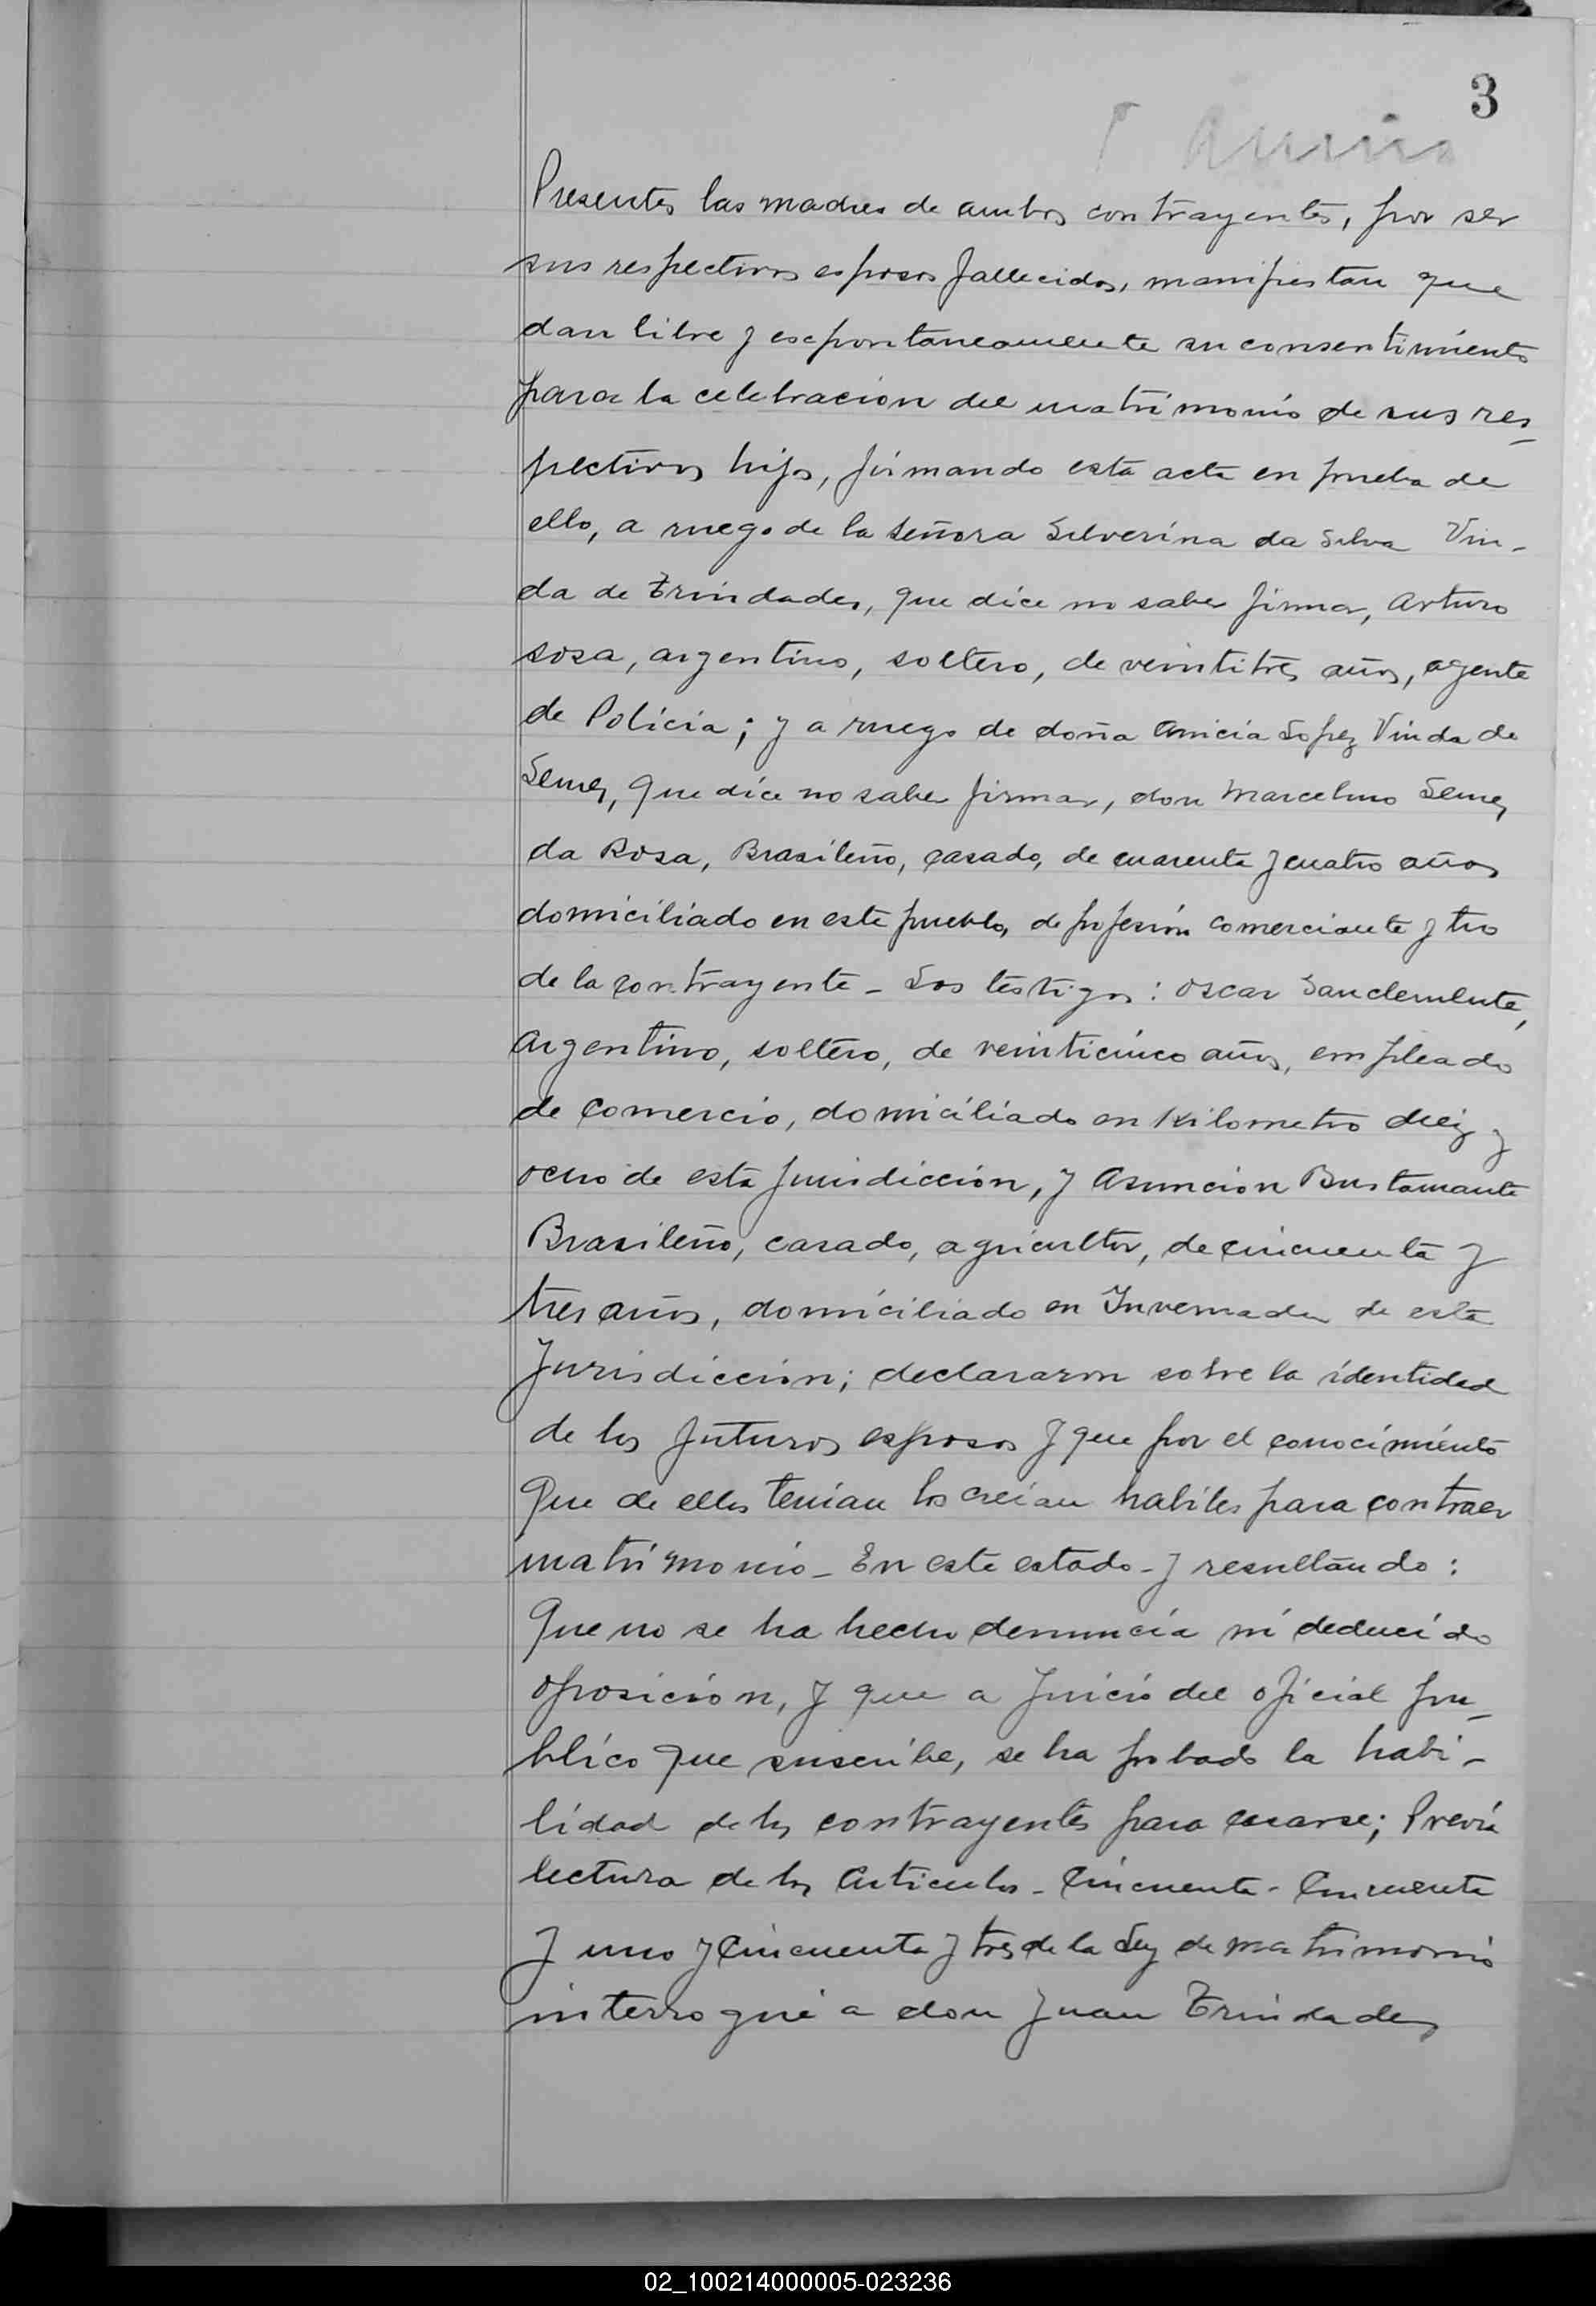 3
Presentes las madres de ambos contrayentes, por ser
sus respectivos esposos fallecidos, manifiestan que
dan libre y espontaneamente su consentimiento
para la celebracion del matrimonio de sus res-
pectivos hijos, firmando esta acta en prueba de
ello, a ruego de la señora Silverina da Silva Viu-
da de Trindades, que dice no saber firmar, Arturo
Sosa, argentino, soltero, de veintitres años, agente
de Policia; y a ruego de doña Anicia Lopez Viuda de
Lemes, que dice no saber firmar, don Marcelino Lemes
da Rosa, Brasileño, casado, de cuarenta y cuatro años
domiciliado en este pueblo, de profesión comerciante y tio
de la contrayente - Los testigos: Oscar Sanclemente,
Argentino, soltero, de veinticinco años, empleado
de comercio, domiciliado en Kilometro diez y
ocho de esta jurisdiccion, y Asuncion Bustamante
Brasileño, casado, agricultor, de cincuenta y
tres años, domiciliado en Invernada de esta
Jurisdiccion; declararon sobre la identidad
de los futuros esposos y que por el conocimiento
Que de ellos tenian los creian habiles para contraer
matrimonio - En este estado - y resultando:
Que no se ha hecho denuncia ni deducido
oposicion, y que a juicio del oficial pu-
blico que suscribe, se ha probado la habi-
lidad de los contrayentes para casarse; Previa
lectura de los Articulos - Cincuenta - Cincuenta
y uno y Cincuenta y tres de la Ley de matrimonio
interrogué a don Juan Trindades
02_100214000005-023236